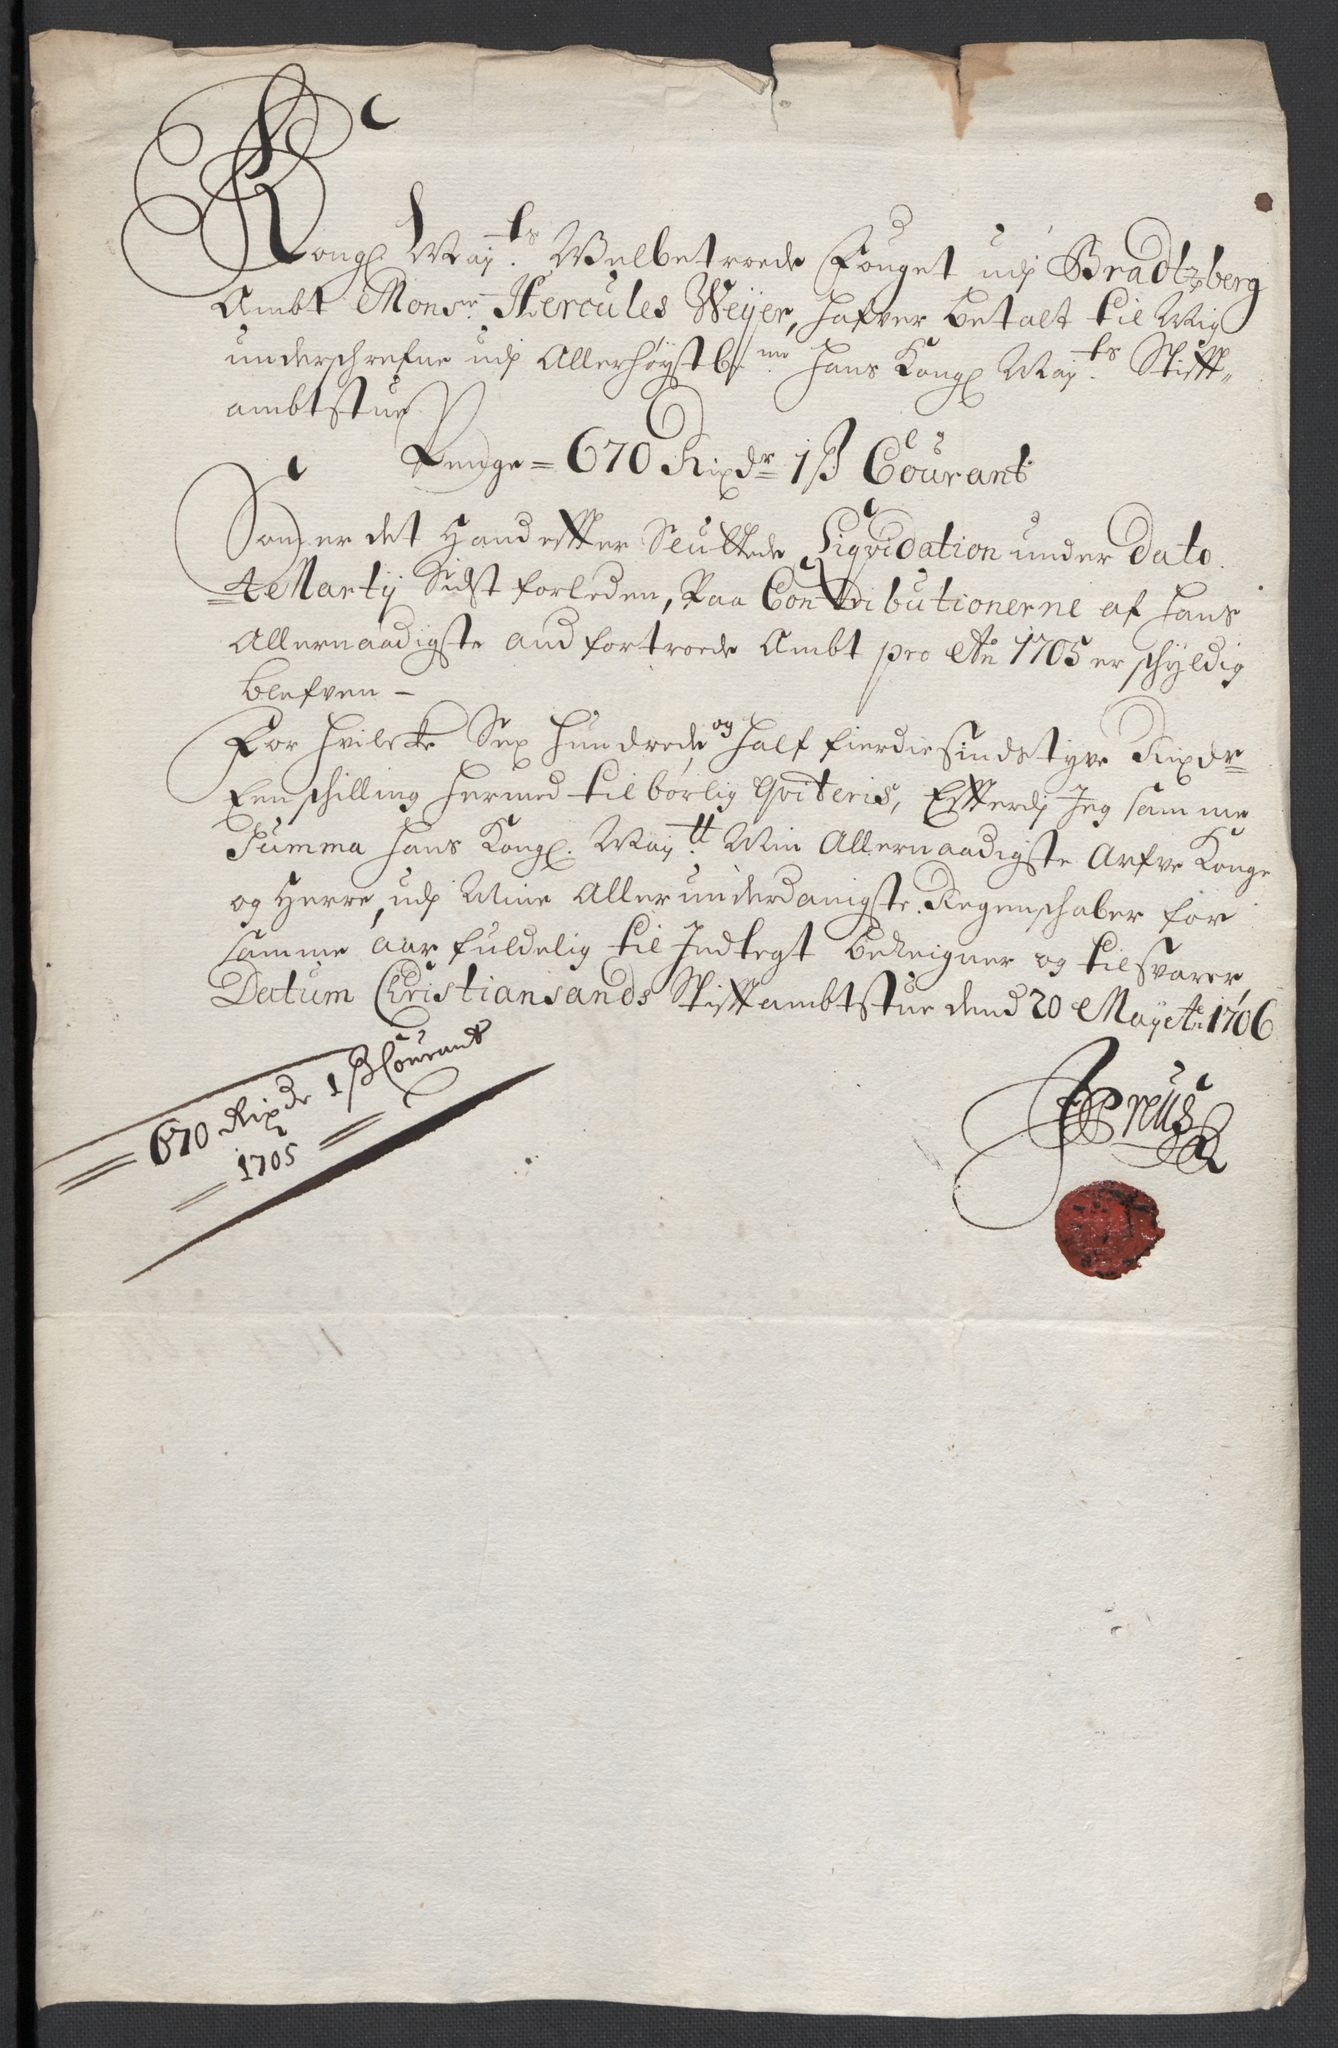 Kongl. May.ts Welbetroede Fouget udj Bradtzberg
Ambt Monsr. Hercules Weyer, hafver betalt til Mig
underschrefne udj Allerhøystb.me hans Kongl. May.ts Stifft-
ambtstue
Penge = 670 Rixdr 1 ß Courant
Som er det Hand effter Sluttede Liqvidation under dato
4 Martij Sidst forleden, Paa Contributionerne af hans
Allernaadigste anfortroede Ambt pro Ao 1705 er schyldig
blefven -
For hvilcke Sex Hundrede, og half fierdiesindstyve Rixdr
Een schilling hermed tilbørlig Qviteris, Efftersom Jeg samme
Summa hans Kongl. May.tt Min Allernaadigste Arfve Konge
og Herre, udj Mine Allerunderdanigste Regenschaber for
samme aar fuldelig til Indtegt bereigner og tilsvarer,
Datum Christiansands Stifftambtstue dend 20 May Ao 1706
670 Rixdr 1 ß Courant
1705